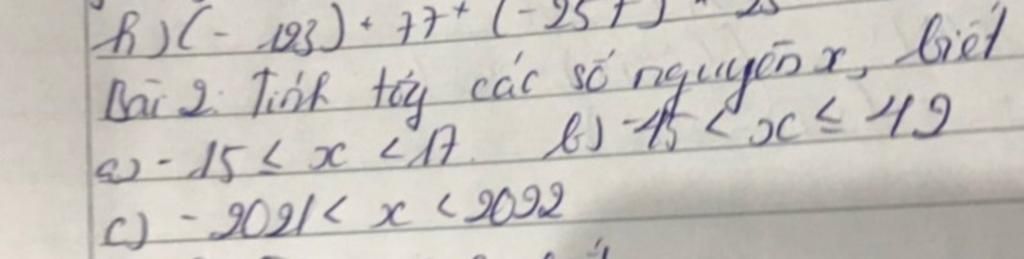 h) (- 193) + 77 + (- 257) +
Bài 2. Tính tổg các số nguyên x, biết
a) - 15 ≤ x < 17. b) -45 < x ≤ 49
c) - 2021 < x < 2022